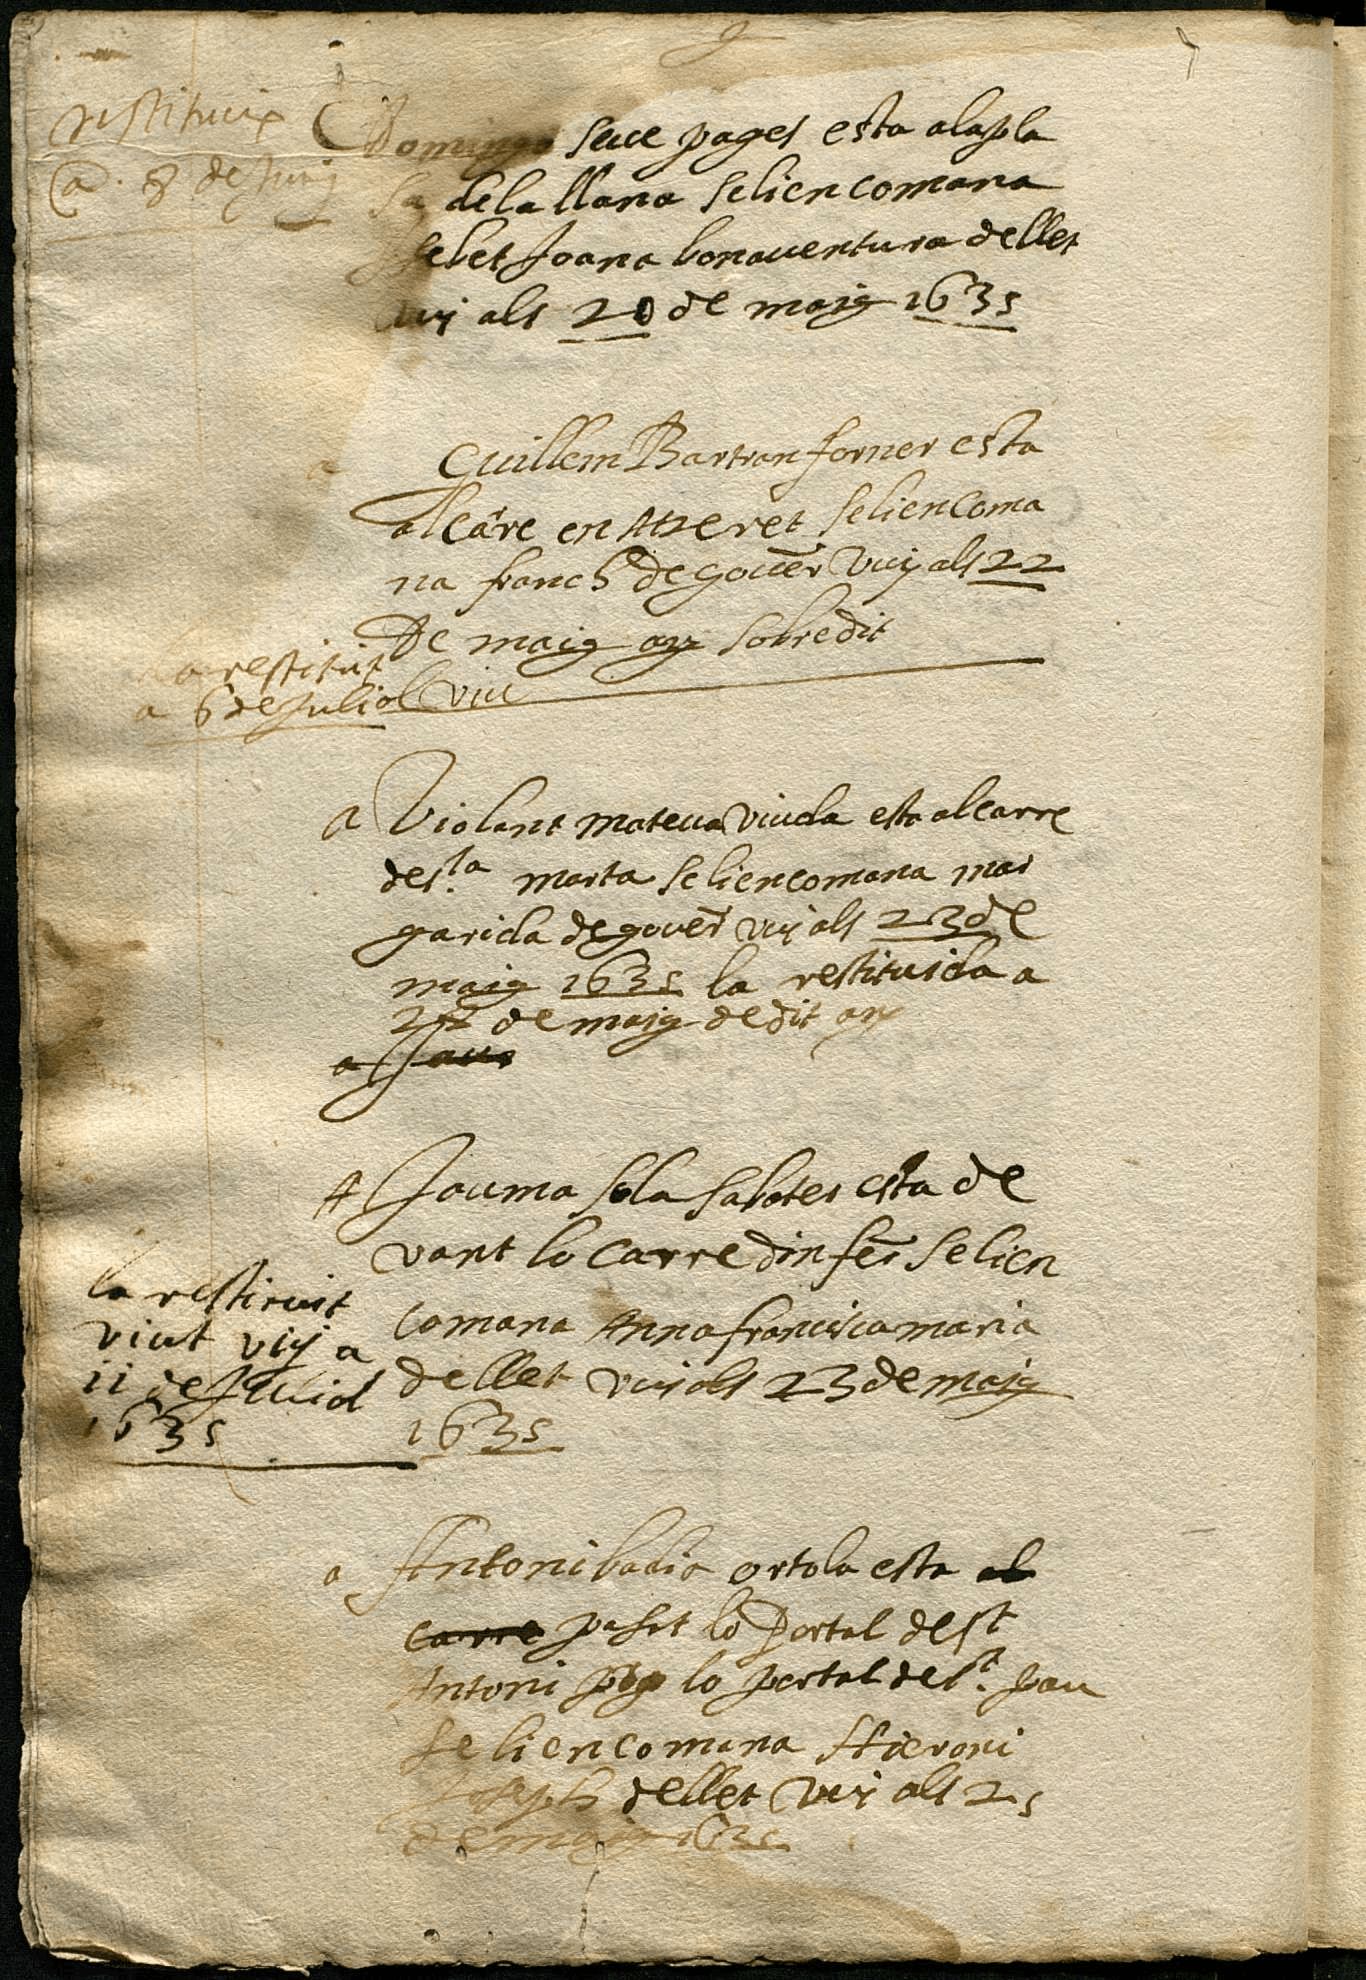 restituix
a 8 de juny
Domingo seve pages esta alapla
sa dela llana seliencomana
Isebet Joana bonaventura dellet
vuy als 20 de maig 1635
a
Guillem Bartran forner esta
alcare en Atzeret seliencoma
na franch de gover vuy als 22
De maig any sobredit
la restituit
a 6 de Juliol viu
a Violant mateua viuda esta alcarre
de s.ta marta seliencomana mar
garida de gover vuy als 23 de
maig 1635 la restituida a
27 de maig de dit any
a Jau
A Jauma sola sabater esta de
vant lo carre dinfer selien
comana Anna francisca maria
dellet vuy als 23 de maig
1635
la restituit
viut vuy a
11 de Juliol
1635
a Antoni badia ortola esta al
carre pasat lo portal de st
Antoni lo portal de st. pau
seliencomana Hieroni
Joseph dellet vuy als 25
de maig 1635